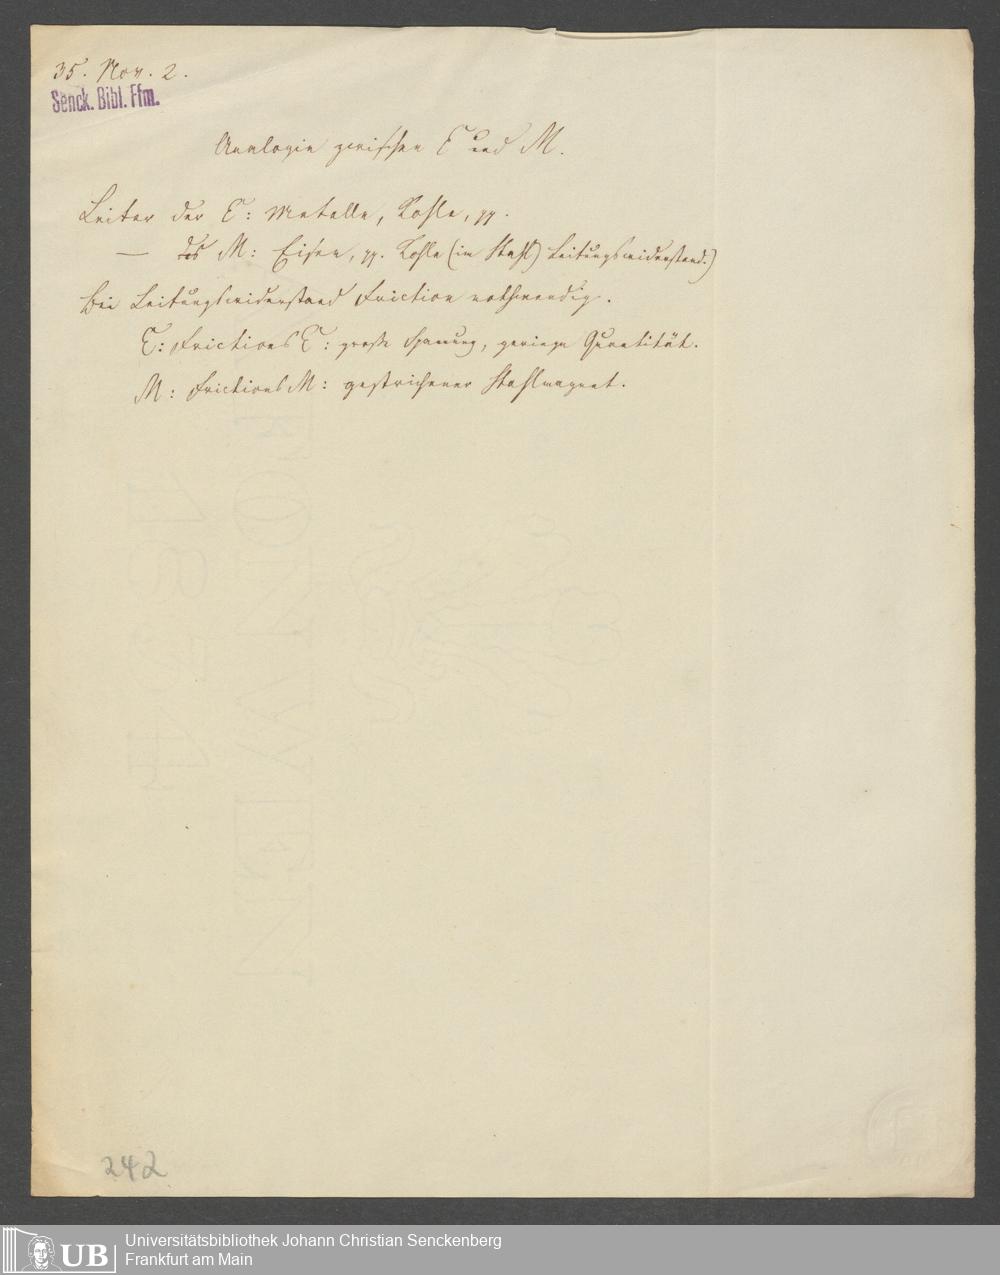 35. Nov. 2.
Senck. Bibl. Ffm.
Analogie zwischen E und M.
Leiter der E: Metalle, Kohle, pp.
— des M: Eisen, pp. Kohle (im Stahl) Leitungswiderstand.)
Bei Leitungswiderstand Friction nothwendig.
E: FrictionsE: große Spannung, geringe Quantität.
M: FrictionsM: gestrichener Stahlmagnet.
242
UB
Universitätsbibliothek Johann Christian Senckenberg
Frankfurt am Main